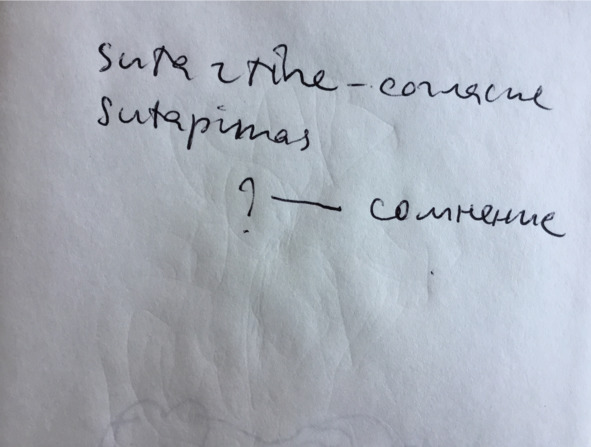 sutartine – согласие
sutapimas
? — сомнение